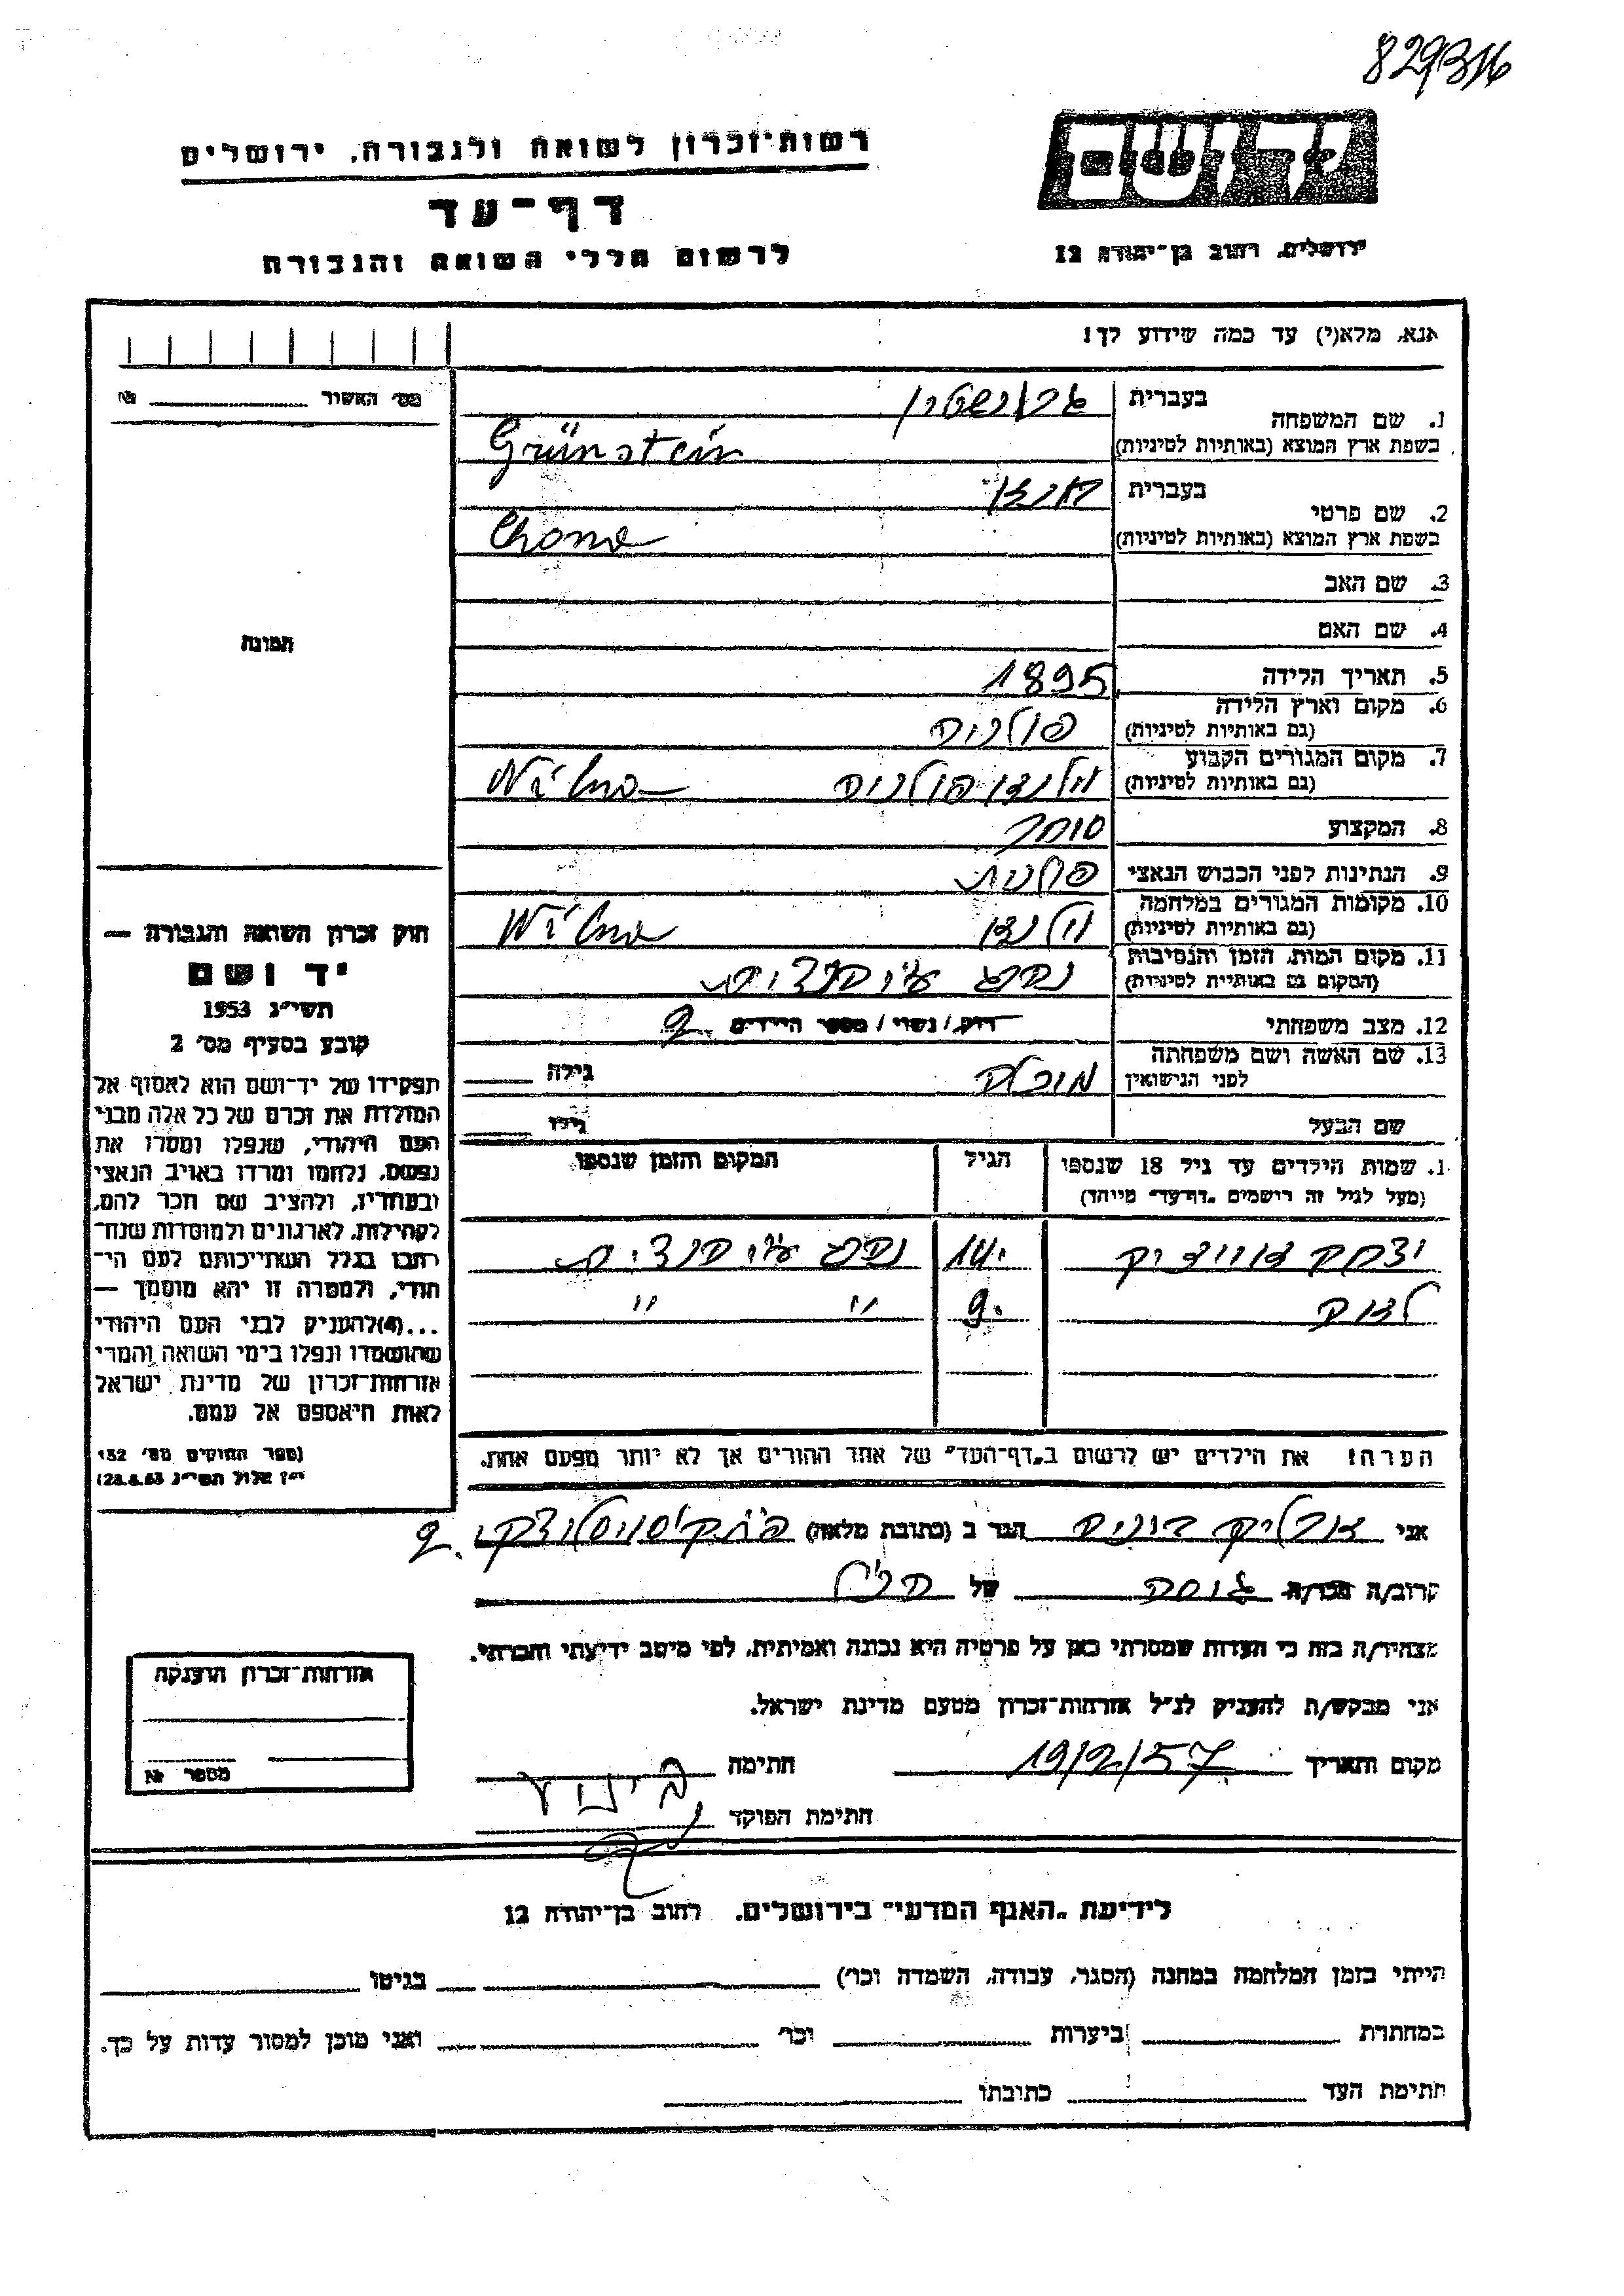 829316
יד ושם
רשות־זכרון לשואה ולגבורה, ירושלים
דף־עד
לרשום חללי השואה והגבורה
ירושלים, רחוב בן־יהודה 12
אנא, מלא(י) עד כמה שידוע לך!
מס׳ האשור №
1. שם המשפחה בעברית גרונשטיין
בשפת ארץ המוצא (באותיות לטיניות) Grünstein
2. שם פרטי בעברית
בשפת ארץ המוצא (באותיות לטיניות) Chona
3. שם האב
4. שם האם
5. תאריך הלידה 1895
6. מקום וארץ הלידה פולניה
(גם באותיות לטיניות)
7. מקום המגורים הקבוע וילנה פולניה Wilna
(גם באותיות לטיניות)
8. המקצוע סוחר
9. הנתינות לפני הכבוש הנאצי פולנית
10. מקומות המגורים במלחמה וילנה Wilna
(גם באותיות לטיניות)
11. מקום המות, הזמן והנסיבות נספה ע״י הנאצים
(המקום גם באותיות לטיניות)
12. מצב משפחתי רווק / נשוי / מספר הילדים 2
13. שם האשה ושם משפחתה
לפני הנישואין גילה
שם הבעל גילו
התמונה
חוק זכרון השואה והגבורה —
יד ושם
תשי״ג 1953
קובע בסעיף מס׳ 2
תפקידו של יד־ושם הוא לאסוף אל
המולדת את זכרם של כל אלה מבני
העם היהודי, שנפלו ומסרו את
נפשם, נלחמו ומרדו באויב הנאצי
ובעוזריו, ולהציב שם וזכר להם,
לקהילות, לארגונים ולמוסדות שנח־
רבו בגלל השתייכותם לעם הי־
הודי, ולמטרה זו יהא מוסמך —
...(4)להעניק לבני העם היהודי
שהושמדו ונפלו בימי השואה והמרי
אזרחות־זכרון של מדינת ישראל
לאות היאספם אל עמם.
(ספר החוקים מס׳ 132
י״ז אלול תשי״ג 28.8.53)
1. שמות הילדים עד גיל 18 שנספו הגיל המקום והזמן שנספו
(מעל לגיל זה רושמים „דף־עד״ מיוחד)
יצחק 14
לאה 9 " "
הערה! את הילדים יש לרשום ב„דף־העד״ של אחד ההורים אך לא יותר מפעם אחת.
אני הגר ב (כתובת מלאה)
קרוב/ה מכר/ה גיסה של הנ״ל
מצהיר/ה בזה כי העדות שמסרתי כאן על פרטיה היא נכונה ואמיתית, לפי מיטב ידיעתי והכרתי.
אני מבקש/ת להעניק לנ״ל אזרחות־זכרון מטעם מדינת ישראל.
מקום ותאריך 19/2/57 חתימה
חתימת הפוקד
אזרחות־זכרון הוענקה
מספר №
לידיעת „האגף המדעי״ בירושלים, רחוב בן־יהודה 12
הייתי בזמן המלחמה במחנה (הסגר, עבודה, השמדה וכו׳) בגיטו
במחתרת ביערות וכו׳ ואני מוכן למסור עדות על כך.
חתימת העד כתובתו